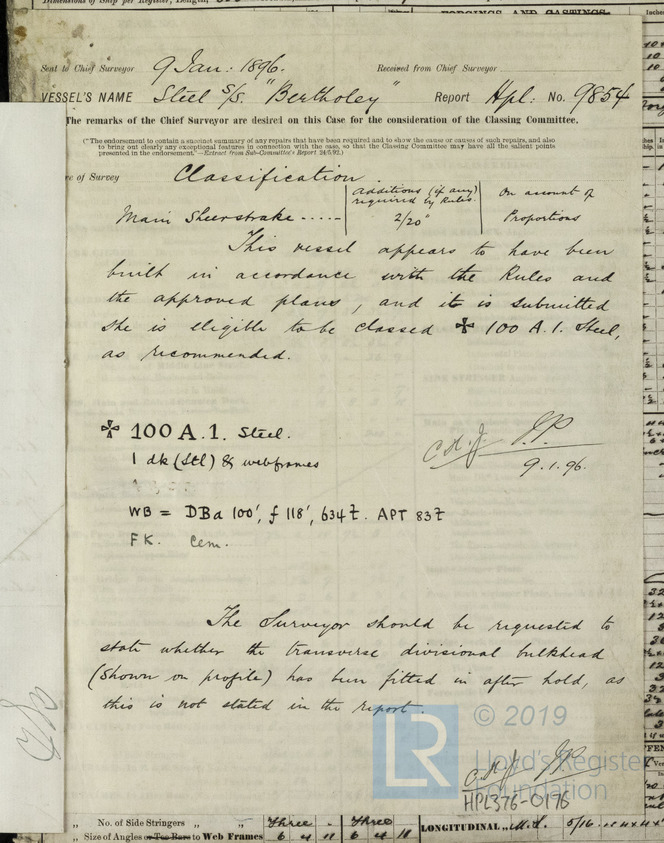 Dimensions of Ship per Register, Length,
FORGINGS AND CASTINGS
Sent to Chief Surveyor 9 Jan: 1896. Received from Chief Surveyor
VESSEL'S NAME Steel S/S. "Bertholey" Report Hpl: No. 9854
The remarks of the Chief Surveyor are desired on this Case for the consideration of the Classing Committee.
("The endorsement to contain a succinct summary of any repairs that have been required and to show the cause or causes of such repairs, and also
to bring out clearly any exceptional features in connection with the case, so that the Classing Committee may have all the salient points
presented in the endorsement."—Extract from Sub-Committee's Report 24/6/92.)
of Survey Classification.
Additions (if any) required by Rules. On account of
Main Sheerstrake ..... 2/20" Proportions
This vessel appears to have been
built in accordance with the Rules and
the approved plans, and it is submitted
she is eligible to be classed ✠ 100 A.1. Steel,
as recommended.
✠ 100 A.1. Steel.
1 dk (Stl) & webframes
9.1.96.
WB = DBa 100', f 118', 634t. APT 83t
FK. Cem.
The Surveyor should be requested to
state whether the transverse divisional bulkhead
(shown on profile) has been fitted in after hold, as
this is not stated in the report.
© 2019
LR
Lloyd's Register
Foundation
HPL376-0176
„ No. of Side Stringers „ „ Three - Three
„ Size of Angles or Tee Bars to Web Frames LONGITUDINAL